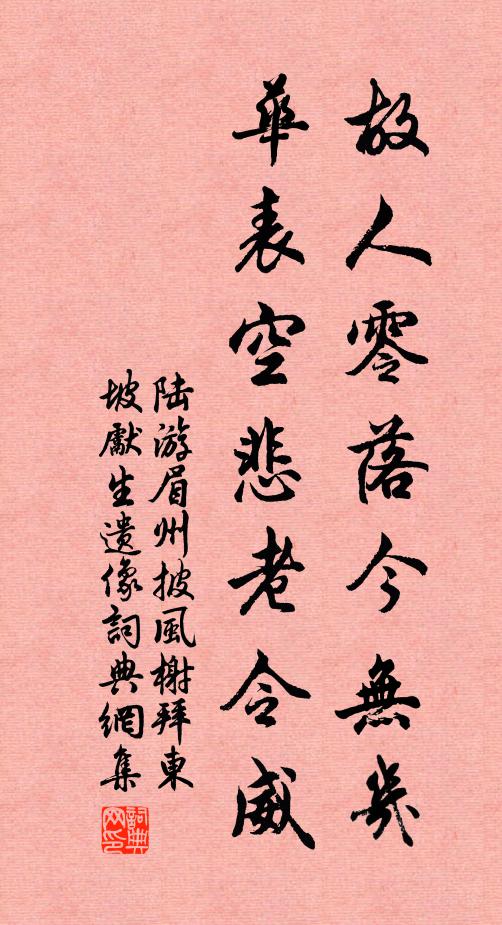 故人零落今無幾
華表空悲老令威
陆游眉州披風榭拜東
坡獻生遺像詞典網集
詞典
网印